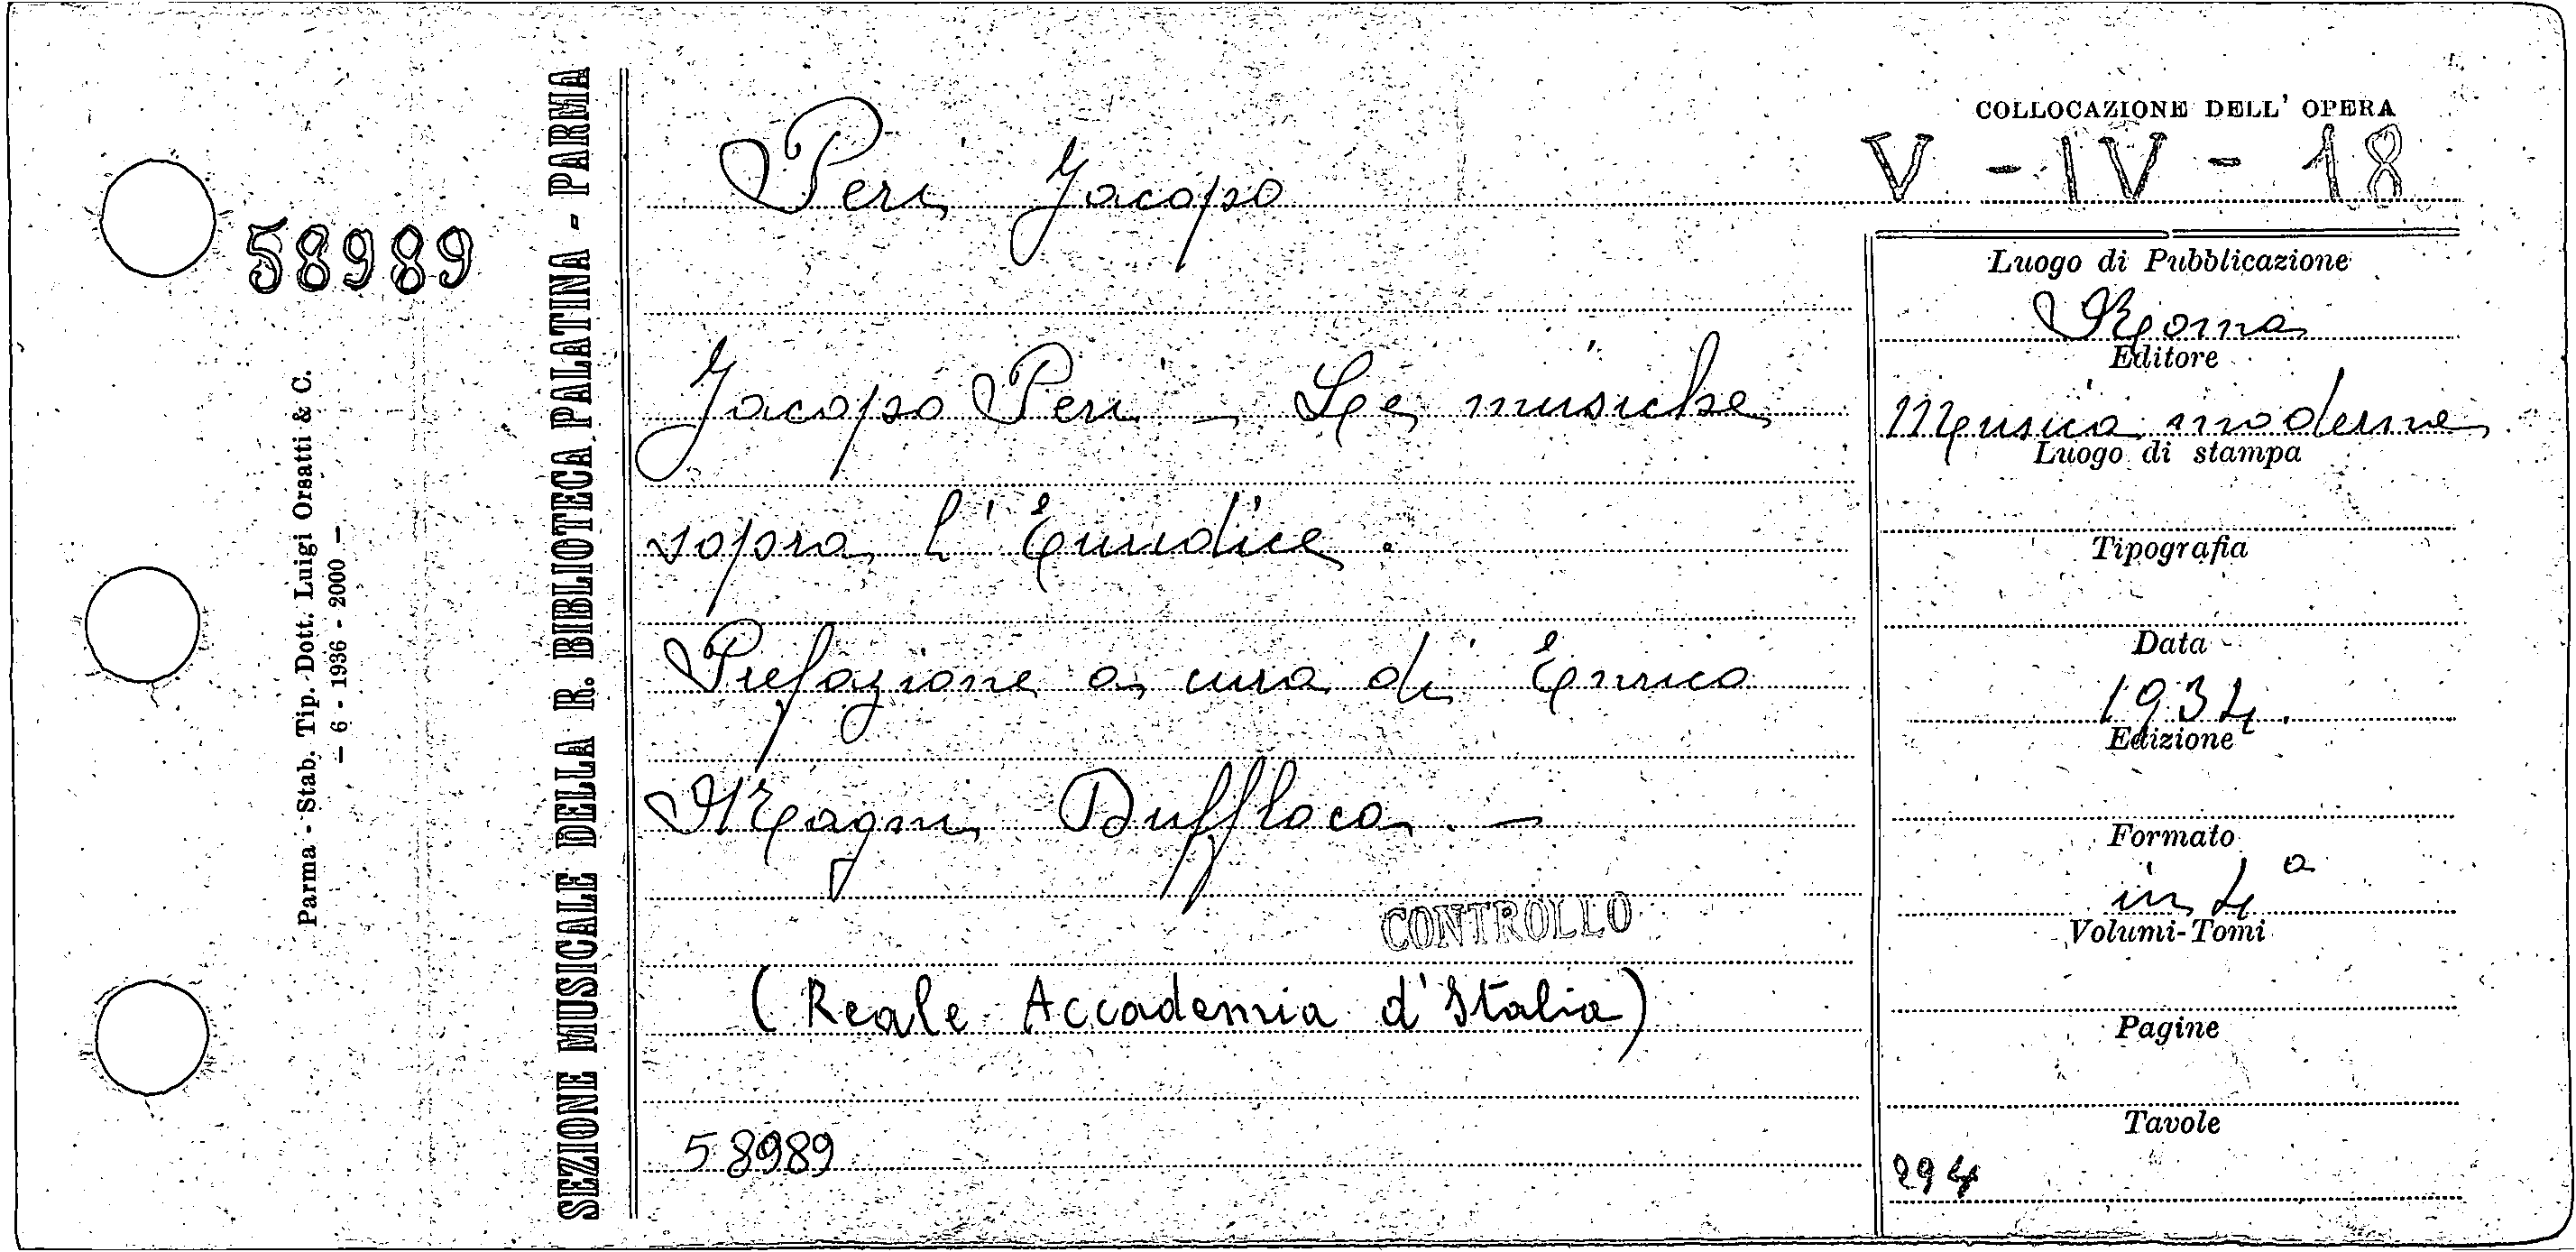 58989
Parma - Stab. Tip. Dott. Luigi Orsatti & C.
– 6 - 1936 - 2000 –
SEZIONE MUSICALE DELLA R. BIBLIOTECA PALATINA - PARMA
Peri Jacopo
Jacopo Peri - Le musiche
sopra l'Euridice.
Prefazione a cura di Enrico
Magni Duffloco. —
CONTROLLO
(Reale Accademia d'Italia)
58989
COLLOCAZIONE DELL' OPERA
V - IV - 18
Luogo di Pubblicazione
Roma
Editore
Musica moderna
Luogo di stampa
Tipografia
Data
1934.
Edizione
Formato
in 4º
Volumi-Tomi
Pagine
Tavole
294